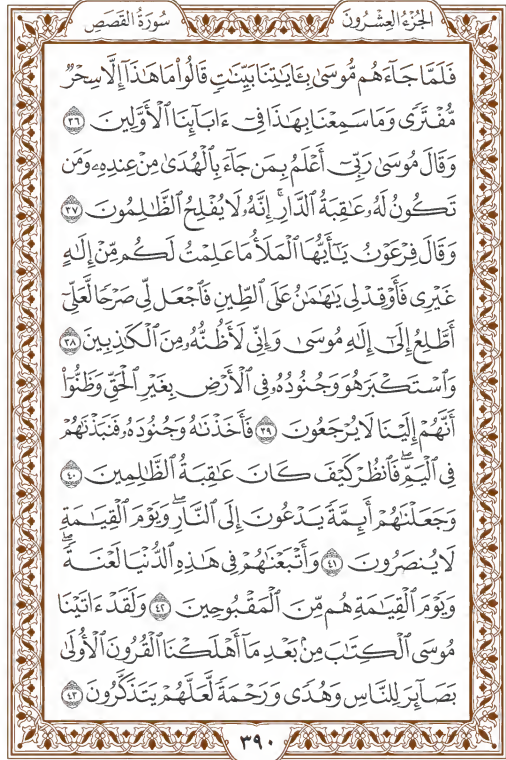 الجُزْءُ العِشْرُونَ
سُورَةُ القَصَصِ
فَلَمَّا جَآءَهُم مُّوسَىٰ بِـَٔايَٰتِنَا بَيِّنَٰتٍ قَالُوا۟ مَا هَٰذَآ إِلَّا سِحْرٌ
مُّفْتَرًى وَمَا سَمِعْنَا بِهَٰذَا فِىٓ ءَابَآئِنَا ٱلْأَوَّلِينَ ٣٦
وَقَالَ مُوسَىٰ رَبِّىٓ أَعْلَمُ بِمَن جَآءَ بِٱلْهُدَىٰ مِنْ عِندِهِۦ وَمَن
تَكُونُ لَهُۥ عَٰقِبَةُ ٱلدَّارِ ۖ إِنَّهُۥ لَا يُفْلِحُ ٱلظَّٰلِمُونَ ٣٧
وَقَالَ فِرْعَوْنُ يَٰٓأَيُّهَا ٱلْمَلَأُ مَا عَلِمْتُ لَكُم مِّنْ إِلَٰهٍ
غَيْرِى فَأَوْقِدْ لِى يَٰهَٰمَٰنُ عَلَى ٱلطِّينِ فَٱجْعَل لِّى صَرْحًا لَّعَلِّىٓ
أَطَّلِعُ إِلَىٰٓ إِلَٰهِ مُوسَىٰ وَإِنِّى لَأَظُنُّهُۥ مِنَ ٱلْكَٰذِبِينَ ٣٨
وَٱسْتَكْبَرَ هُوَ وَجُنُودُهُۥ فِى ٱلْأَرْضِ بِغَيْرِ ٱلْحَقِّ وَظَنُّوٓا۟
أَنَّهُمْ إِلَيْنَا لَا يُرْجَعُونَ ٣٩ فَأَخَذْنَٰهُ وَجُنُودَهُۥ فَنَبَذْنَٰهُمْ
فِى ٱلْيَمِّ ۖ فَٱنظُرْ كَيْفَ كَانَ عَٰقِبَةُ ٱلظَّٰلِمِينَ ٤٠
وَجَعَلْنَٰهُمْ أَئِمَّةً يَدْعُونَ إِلَى ٱلنَّارِ ۖ وَيَوْمَ ٱلْقِيَٰمَةِ
لَا يُنصَرُونَ ٤١ وَأَتْبَعْنَٰهُمْ فِى هَٰذِهِ ٱلدُّنْيَا لَعْنَةً ۖ
وَيَوْمَ ٱلْقِيَٰمَةِ هُم مِّنَ ٱلْمَقْبُوحِينَ ٤٢ وَلَقَدْ ءَاتَيْنَا
مُوسَى ٱلْكِتَٰبَ مِنۢ بَعْدِ مَآ أَهْلَكْنَا ٱلْقُرُونَ ٱلْأُولَىٰ
بَصَآئِرَ لِلنَّاسِ وَهُدًى وَرَحْمَةً لَّعَلَّهُمْ يَتَذَكَّرُونَ ٤٣
٣٩٠